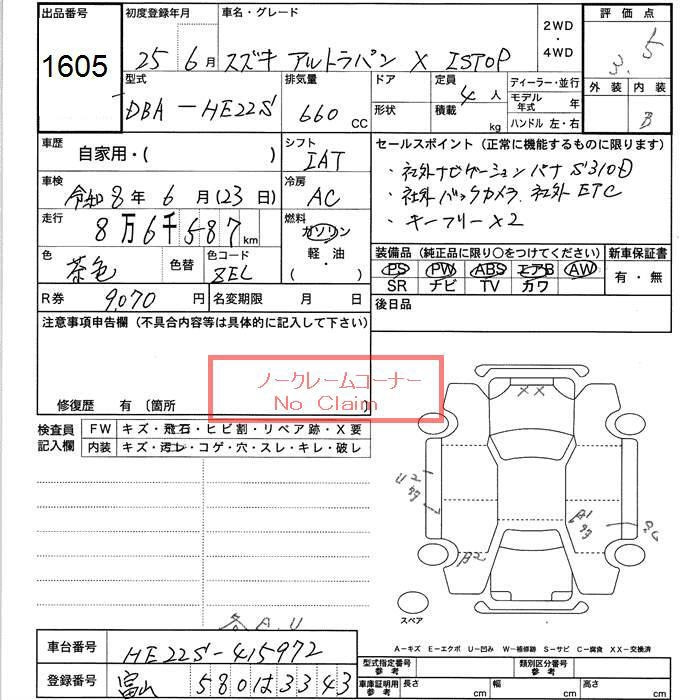 出品番号
1605
初度登録年月
25 6月
車名・グレード
スズキ アルトラパン X ISTOP
2WD
・
4WD
評価点
3.5
外装 内装
B
型式
DBA-HE22S
排気量
660 CC
ドア
形状
定員 4人
積載 kg
ディーラー・並行
モデル年式 年
ハンドル 左・右
車歴
自家用・( )
シフト
IAT
セールスポイント (正常に機能するものに限ります)
・社外ナビゲーション パナ S310D
・社外バックカメラ、社外ETC
・キーフリー×2
車検
令和8年 6月(23日)
冷房
AC
走行
8万6千587km
燃料
ガソリン
軽・油
・( )
色
茶色
色替
色コード
ZEL
装備品 (純正品に限り○をつけてください)
PS PW ABS エアB AW
SR ナビ TV カワ
新車保証書
有・無
R券 9,070 円
名変期限 月 日
後日品
注意事項申告欄 (不具合内容等は具体的に記入して下さい)
ノークレームコーナー
No Claim
修復歴 有 〔箇所 〕
検査員
記入欄
FW キズ・飛石・ヒビ割・リペア跡・X要
内装 キズ・汚レ・コゲ・穴・スレ・キレ・破レ
XX
U2
A1
β2
スペア
各A.U
A-キズ E-エクボ U-凹み W-補修跡 S-サビ C-腐食 XX-交換済
車台番号
HE22S-415972
登録番号
富山 580 は 3343
型式指定番号
参考
類別区分番号
参考
車庫証明用
参考
長さ cm
幅 cm
高さ cm